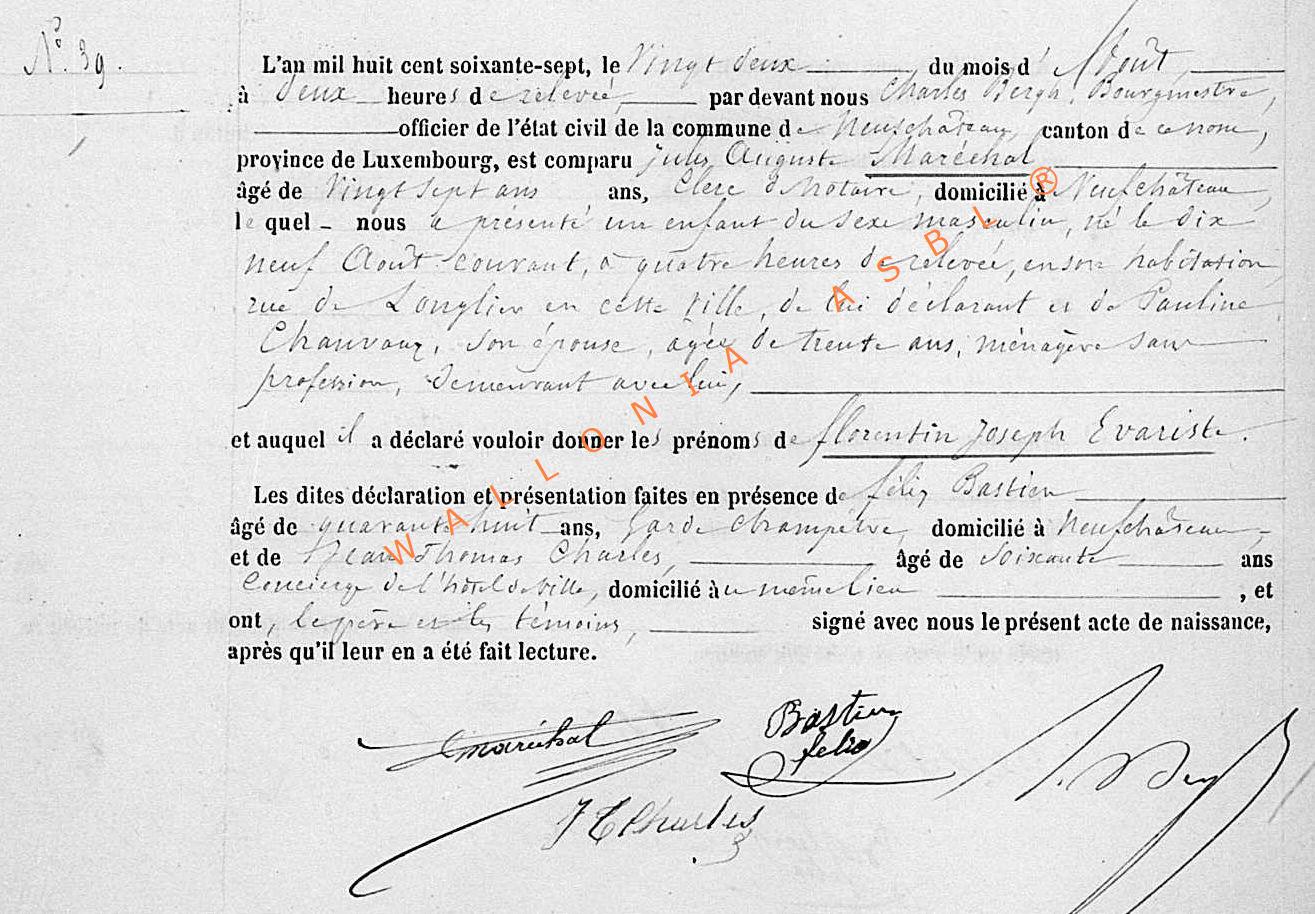 N° 39.
L'an mil huit cent soixante-sept, le Vingt deux du mois d' Août,
à deux heures de relevée, par devant nous Charles Bergh, Bourgmestre,
officier de l'état civil de la commune de Neufchâteau, canton de ce nom,
province de Luxembourg, est comparu Jules Auguste Maréchal
âgé de Vingt sept ans ans, Clerc de Notaire, domicilié à Neufchâteau,
le quel - nous a présenté un enfant du sexe masculin, né le dix
neuf Août courant, à quatre heures de relevée, en son habitation
rue de Longlier en cette ville, de lui déclarant et de Pauline
Chauvaux, son épouse, agée de trente ans, ménagère sans
profession, demeurant avec lui,
et auquel il a déclaré vouloir donner les prénoms de florentin Joseph Evariste.
Les dites déclaration et présentation faites en présence de félix Bastien
âgé de quarante huit ans, Garde champêtre, domicilié à Neufchâteau,
et de Jean Thomas Charles, âgé de soixante ans
Concierge de l'hôtel de ville, domicilié au même lieu , et
ont, le père et les témoins, signé avec nous le présent acte de naissance,
après qu'il leur en a été fait lecture.
WALLONIA ASBL ®
Maréchal
Bastien
felix
J T Charles